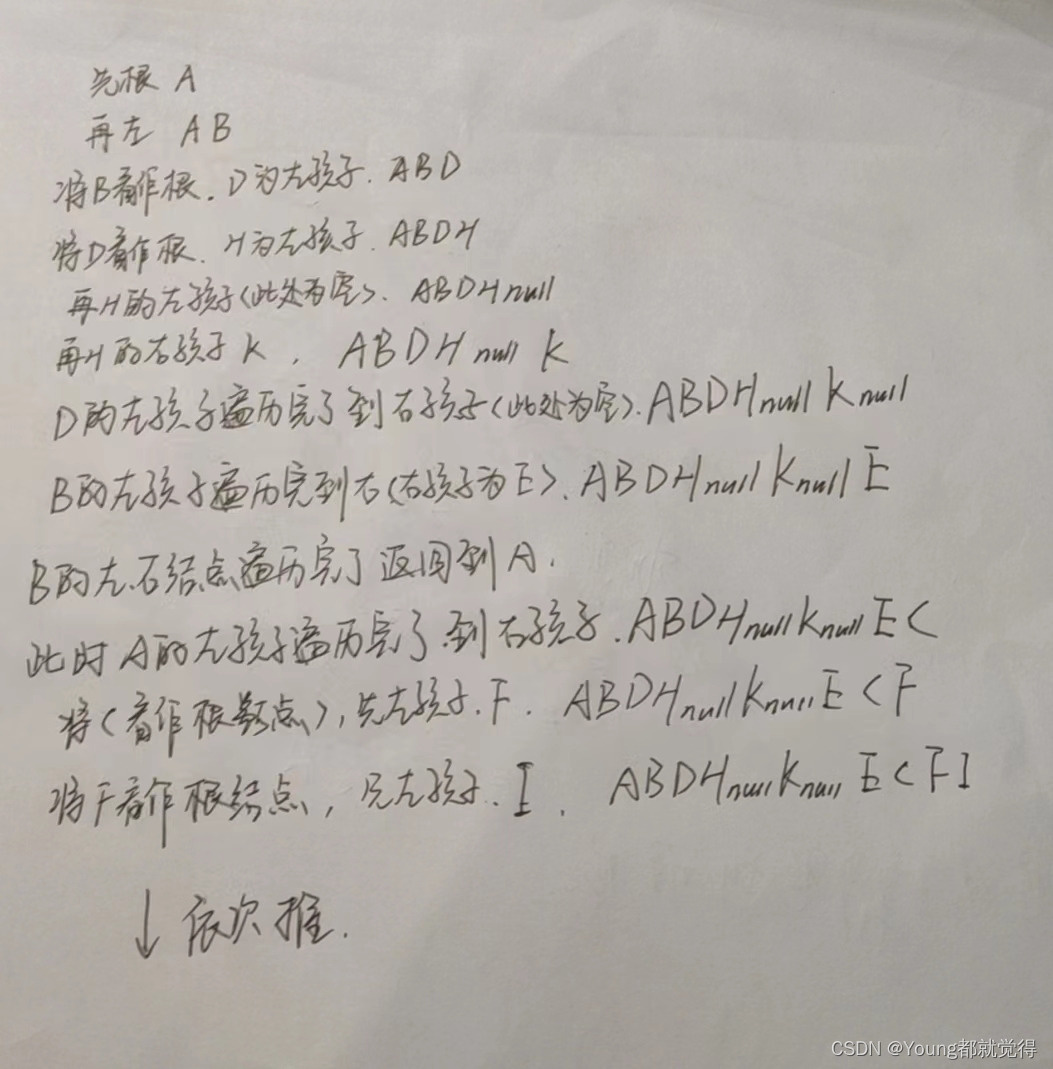 先根 A
再左 AB
将B看作根. D为左孩子. ABD
将D看作根. H为左孩子. ABDH
再H的左孩子(此处为空). ABDHnull
再H的右孩子K. ABDHnull K
D的左孩子遍历完了到右孩子(此处为空). ABDHnull Knull
B的左孩子遍历完到右(右孩子为E). ABDHnull Knull E
B的左.右结点遍历完了返回到A.
此时A的左孩子遍历完了到右孩子. ABDHnull Knull E C
将C看作根结点, 先左孩子. F. ABDHnull Knull E C F
将F看作根结点, 先左孩子. I. ABDHnull Knull E C F I
↓ 依次推.
CSDN @Young都就觉得